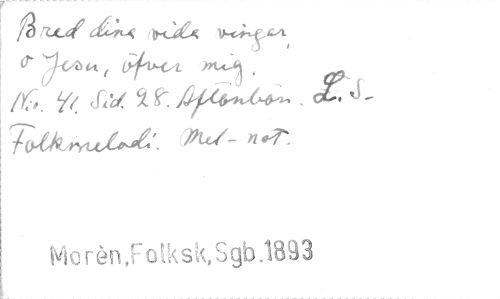 Bred dina vida vingar,
o Jesu, öfver mig.
No. 41. Sid. 28. Aftonbön. L. S-
Folkmelodi. Mel-not.
Morèn,Folksk,Sgb.1893